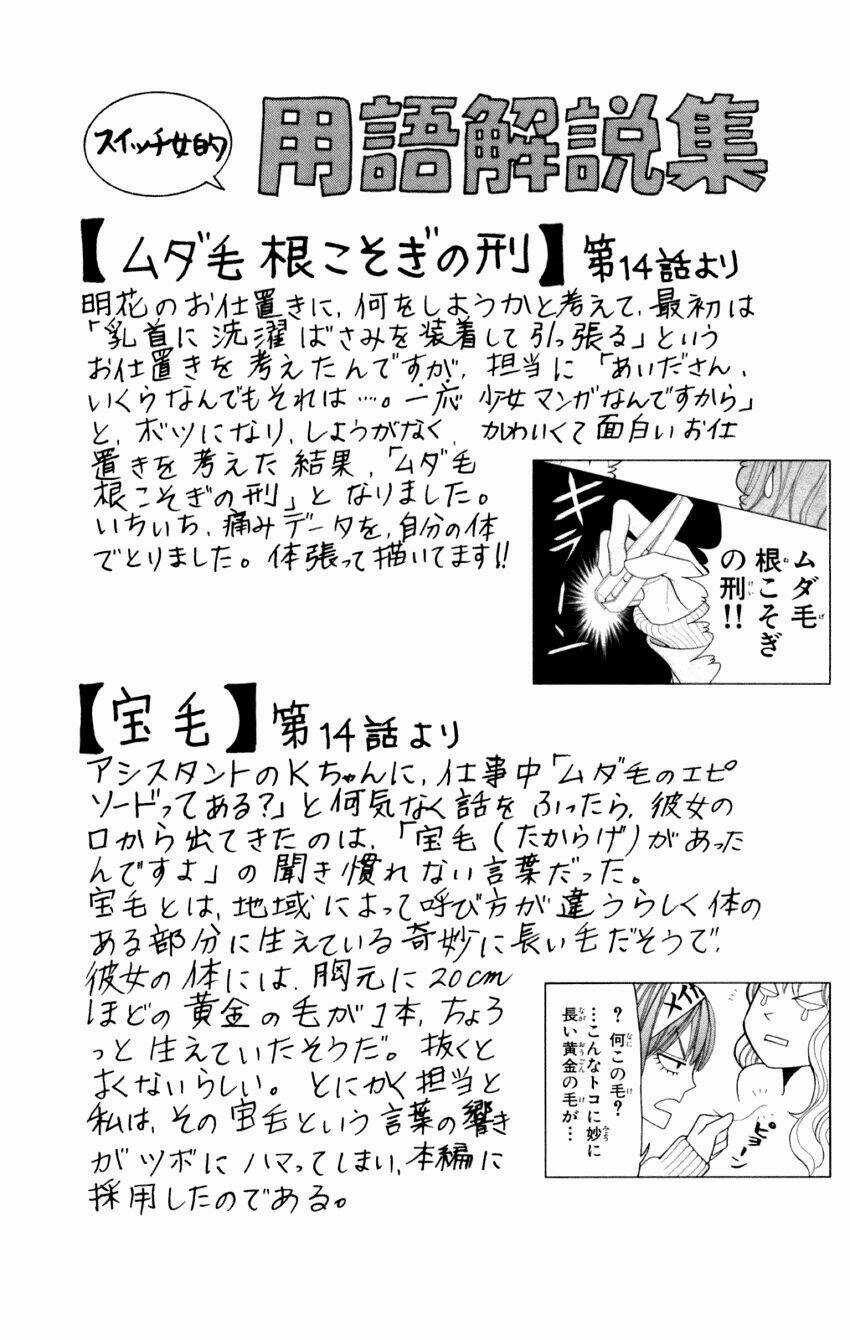 スイッチ女的
用語解説集
【ムダ毛根こそぎの刑】第14話より
明花のお仕置きに、何をしようかと考えて、最初は
「乳首に洗濯ばさみを装着して引っ張る」という
お仕置きを考えたんですが、担当に「あいださん、
いくらなんでもそれは…。一応少女マンガなんですから」
と、ボツになり、しようがなく、かわいくて面白いお仕
置きを考えた結果、「ムダ毛
根こそぎの刑」となりました。
いちいち、痛みデータを、自分の体
でとりました。体張って描いてます!!
ムダ毛
根こそぎ
の刑!!
【宝毛】第14話より
アシスタントのKちゃんに、仕事中「ムダ毛のエピ
ソードってある?」と何気なく話をふったら、彼女の
口から出てきたのは、「宝毛(たからげ)があった
んですよ」の聞き慣れない言葉だった。
宝毛とは、地域によって呼び方が違うらしく体の
ある部分に生えている奇妙に長い毛だそうで、
彼女の体には、胸元に20cm
ほどの黄金の毛が1本、ちょろ
っと生えていたそうだ。抜くと
よくないらしい。とにかく担当と
私は、その宝毛という言葉の響き
がツボにハマってしまい、本編に
採用したのである。
メガ
?何この毛?
…こんなトコに妙に
長い黄金の毛が…
ピヨーン